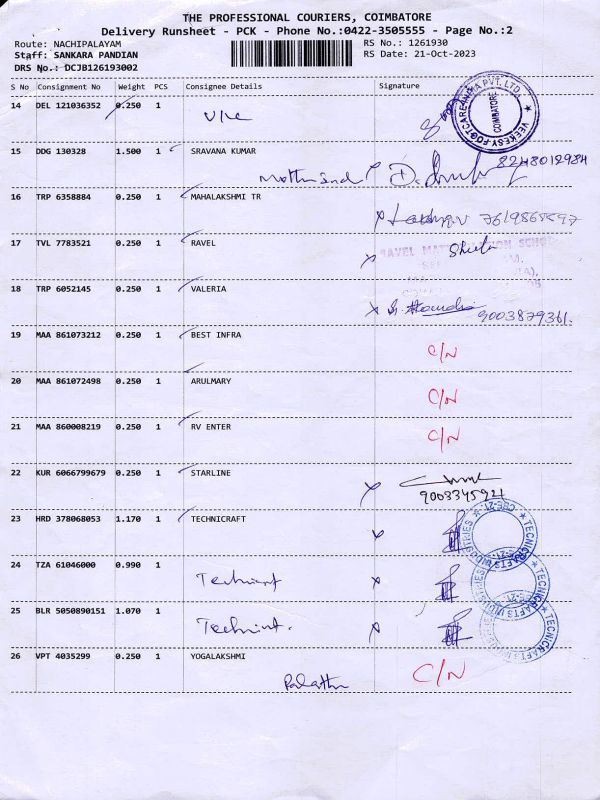 THE PROFESSIONAL COURIERS, COIMBATORE
Delivery Runsheet - PCK - Phone No.:0422-3505555 - Page No.:2
Route: NACHIPALAYAM RS No.: 1261930
Staff: SANKARA PANDIAN RS Date: 21-Oct-2023
DRS No.: DCJB126193002
S No Consignment No Weight PCS Consignee Details Signature
14 DEL 121036352 0.250 1
VEEKESY FOOTCARE INDIA PVT. LTD. COIMBATORE
15 DDG 130328 1.500 1 SRAVANA KUMAR
8248012984
16 TRP 6358884 0.250 1 MAHALAKSHMI TR
7619865597
17 TVL 7783521 0.250 1 RAVEL
18 TRP 6052145 0.250 1 VALERIA
9003879361.
19 MAA 861073212 0.250 1 BEST INFRA
C/N
20 MAA 861072498 0.250 1 ARULMARY
C/N
21 MAA 860008219 0.250 1 RV ENTER
C/N
22 KUR 6066799679 0.250 1 STARLINE
9003345921
23 HRD 378068053 1.170 1 TECHNICRAFT
TECNICRAFTS INDUSTRIES CBE-21
24 TZA 61046000 0.990 1
TECNICRAFTS INDUSTRIES
25 BLR 5050890151 1.070 1
TECNICRAFTS
26 VPT 4035299 0.250 1 YOGALAKSHMI
C/N